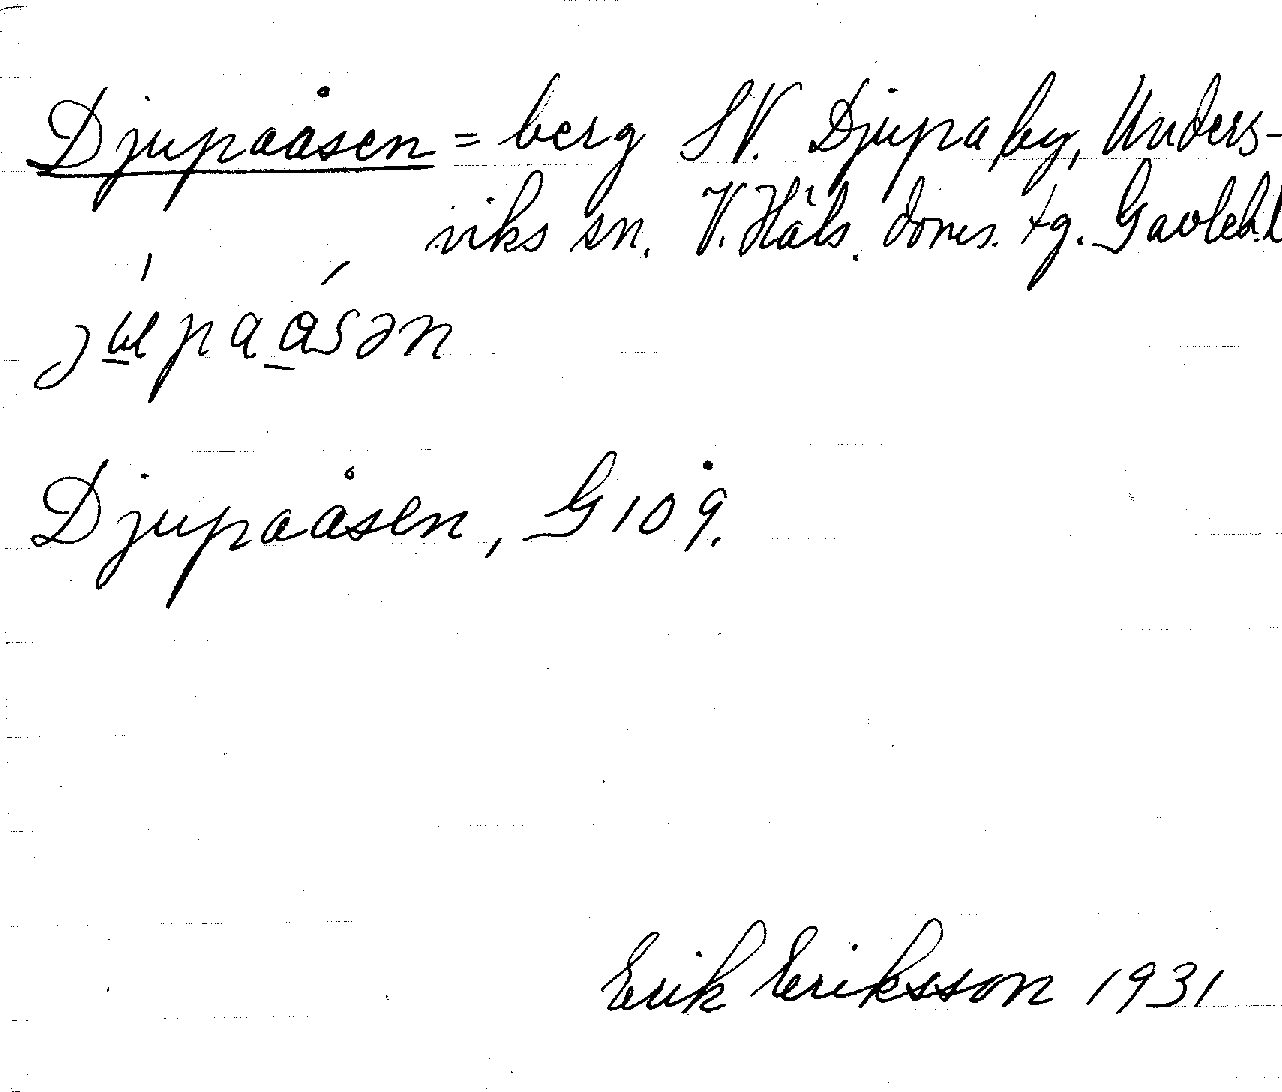 Djupaåsen = berg SV. Djupa by, Unders-
viks sn. V. Häls. doms. tg. Gävleb. l
Djupaåsen, G10g.
Erik Eriksson 1931